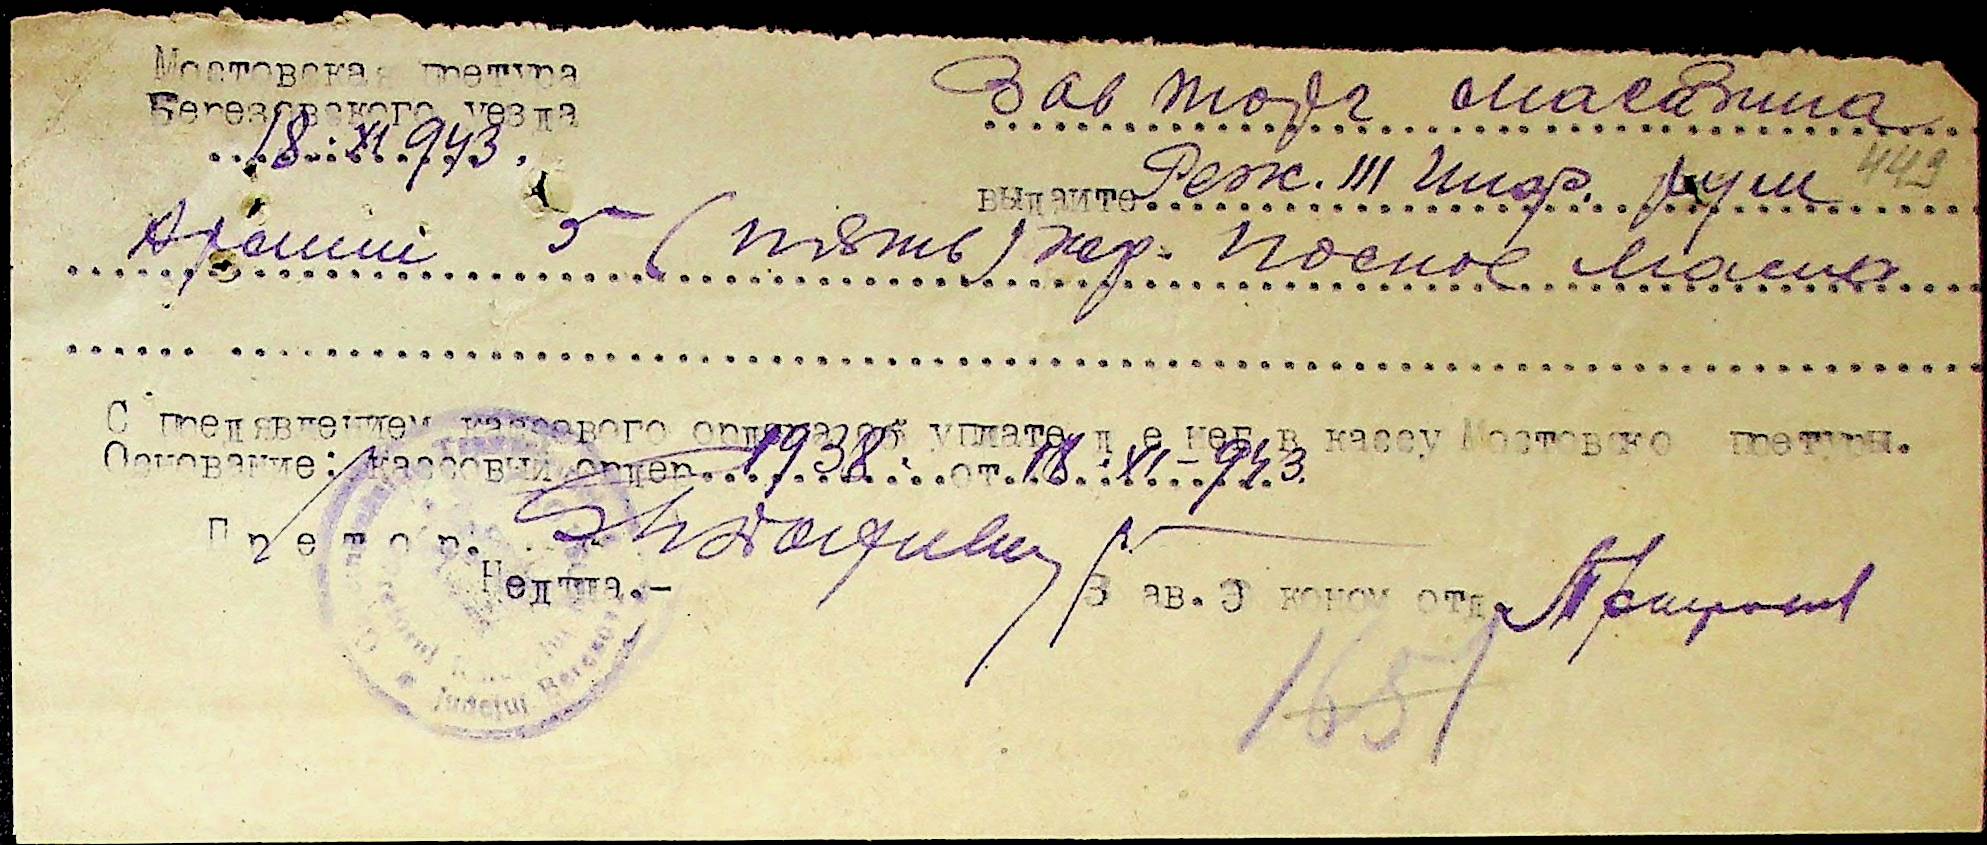 Мостовская претура
Березовского уезда
18. XI 943.
Зав торг магазина
449
выдайте Реж. III Инф. рум
Армии 5 (пять) кгр. Посное масло
С предявлением кассового ордера об уплате д е нег в кассу Мостовско претуры.
Основание: кассовый ордер 1938. от 18. XI - 943.
П р е т о р.
Недина.-
З ав. Э коном отд.
1651
Judeţul Berezovca